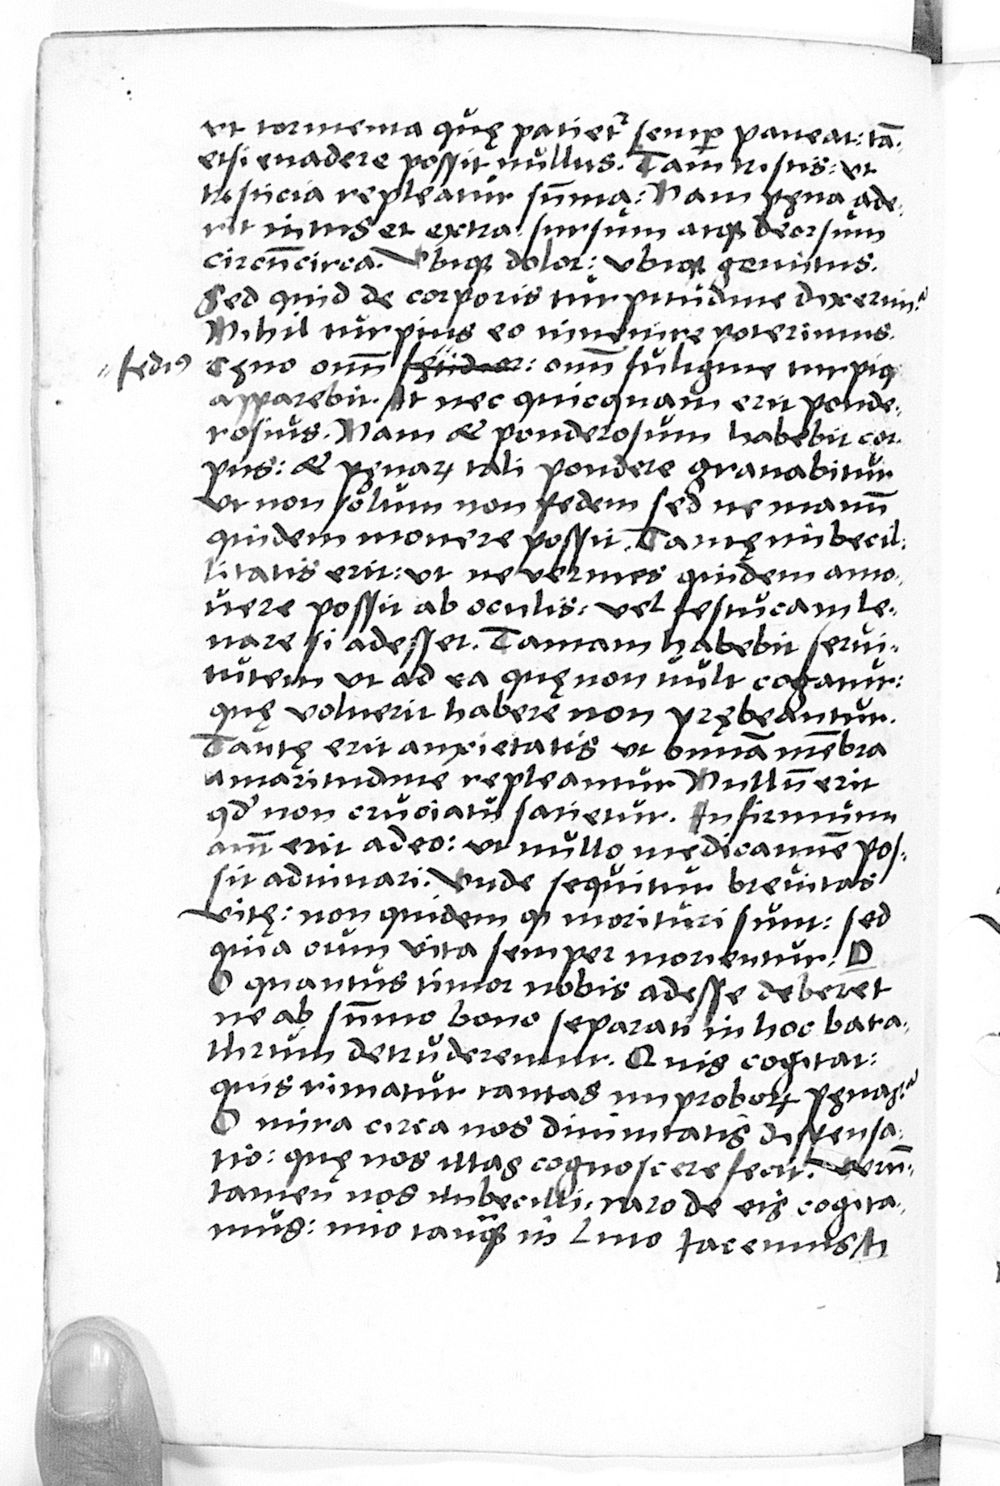 et tormenta quę patiet᷑ semꝑ paueat: tā-
etsi euadere possit nullus. Tam tristis: ut
tristicia repleatur sūma: Nam pęna ade-
rit intus et extra: sursum atqꝫ deorsum
circūcirca. Vbiqꝫ dolor: vbiqꝫ gemitus.
Sed quid de corporis turpitudine dixerim?
Nihil turpius eo inuenire poterimus.
fedius Cęno omī: omī fuligine turpius
apparebit. At nec quicquam erit ponde-
rosius. Nam & ponderosum habebit cor-
pus: & pęnaꝝ tali pondere grauabitur
vt non solum non pedem sed ne manū
quidem mouere possit. Tantę imbecil-
litatis erit: ut ne vermes quidem amo-
uere possit ab oculis: vel festucam le-
uare si adesset. Tantam habebit serui-
tutem ut ad ea quę non uult cogatur:
quę voluerit habere non prębeantur.
Tantę erit anxietatis ut omnia mēbra
amaritudine repleantur Nullū erit
qd' non cruciatu satietur. Infirmum
aūt erit adeo: ut nullo medicamine pos-
sit adiuuari. Vnde sequitur breuitas
vitę: non quidem qꝫ morituri sunt: sed
quia cum vita semper morientur. O
O quantus timor nobis adesse deberet
ne ab sūmo bono separati in hoc bara-
thrum detruderemur. Quis cogitat:
quis rimatur tantas improboꝝ pęnas?
O mira circa nos diuinitatis dispensa-
tio: quę nos illas cognoscere fecit. Verū-
tamen nos imbecilli. raro de eis cogita-
mus: imo tanqꝫ in luto iacemus